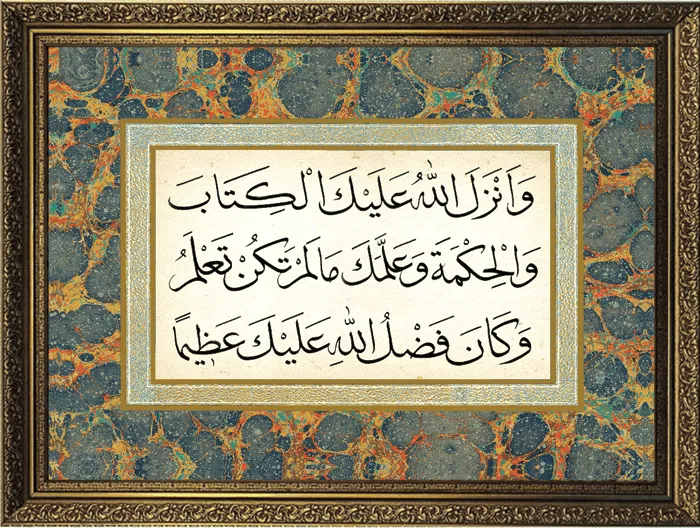 وَاَنْزَلَ اللّٰهُ عَلَيْكَ الْكِتَابَ
وَالْحِكْمَةَ وَعَلَّمَكَ مَالَمْ تَكُنْ تَعْلَمُ
وَكَانَ فَضْلُ اللّٰهِ عَلَيْكَ عَظِيمًا